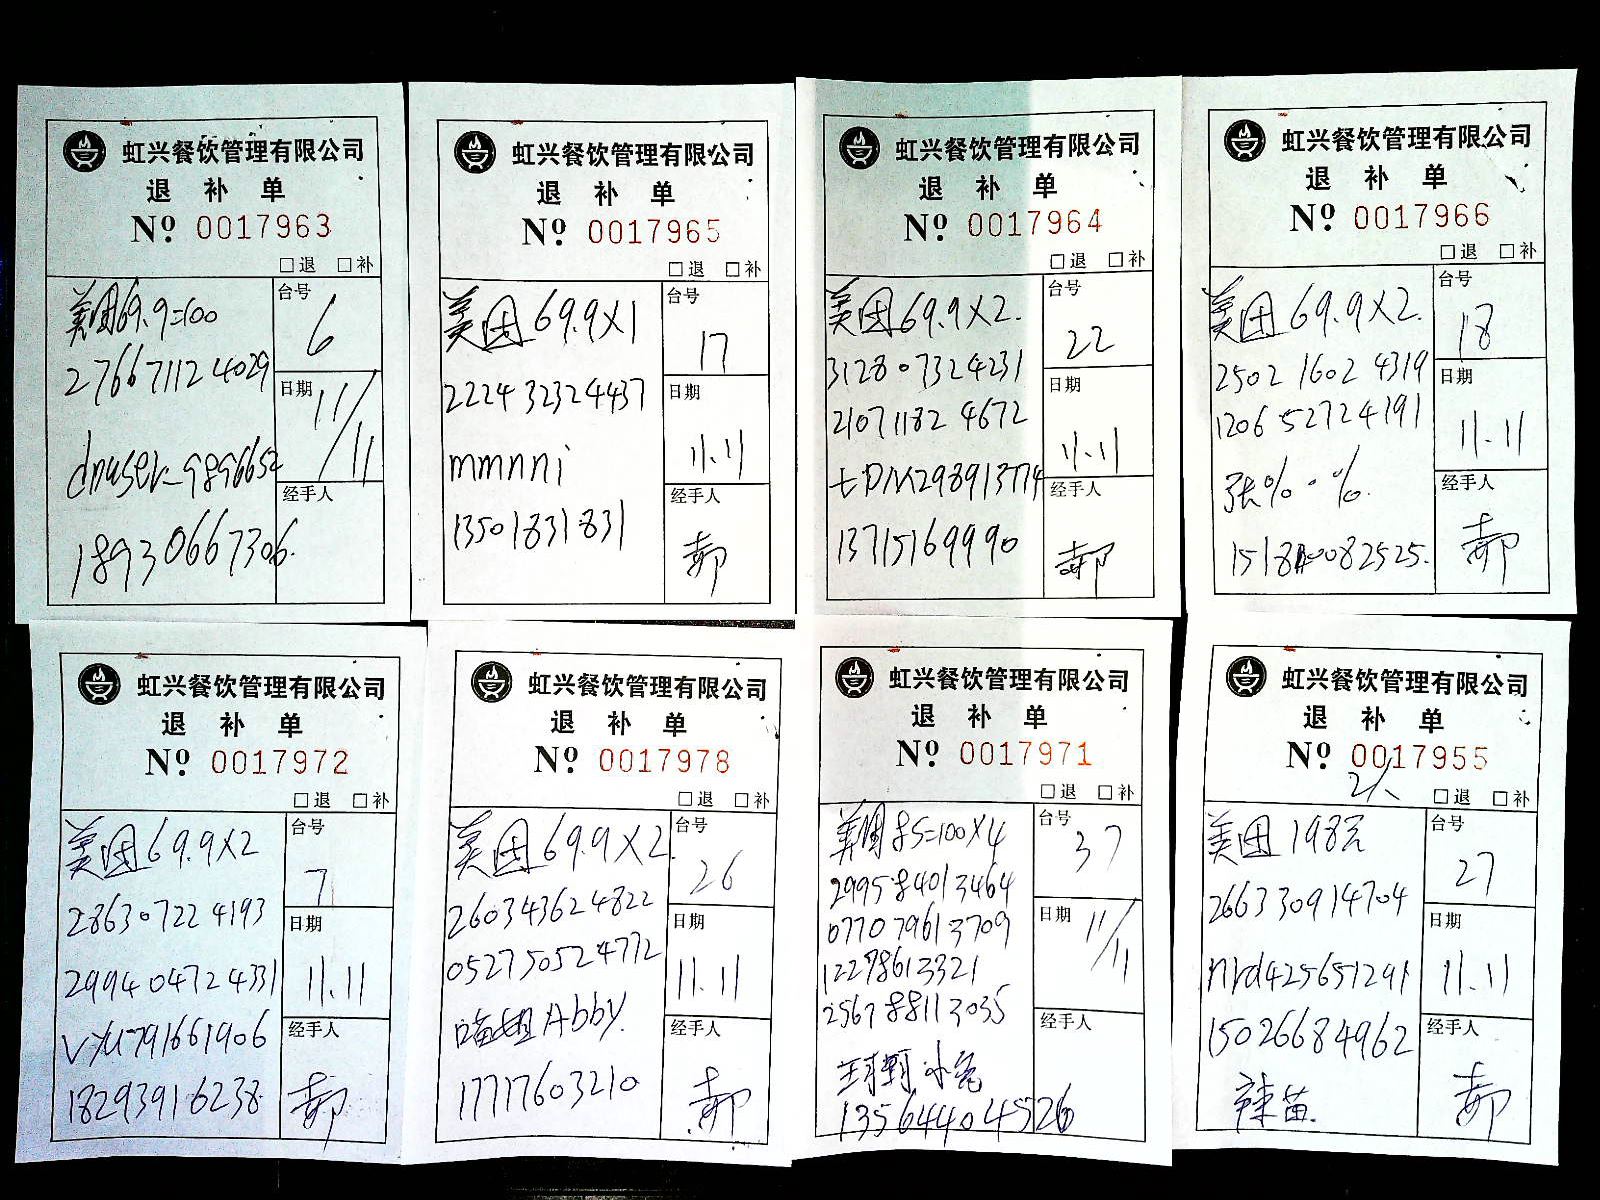 虹兴餐饮管理有限公司
退 补 单
Nº 0017963
□退 □补
美团69.9=100
276671124029
dnuser-9896652
18930667306.
台号
6
日期
11/11
经手人
虹兴餐饮管理有限公司
退 补 单
Nº 0017965
□退 □补
美团69.9X1
222432324437
mmnni
13501831831
台号
17
日期
11.11
经手人
郝
虹兴餐饮管理有限公司
退 补 单
Nº 0017964
□退 □补
美团69.9X2.
312807324231
210711824672
tDM298913774
13715169990
台号
22
日期
11.11
经手人
郝
虹兴餐饮管理有限公司
退 补 单
Nº 0017966
□退 □补
美团69.9X2.
250216024319
120652724191
张%·%.
台号
18
日期
11.11
经手人
郝
虹兴餐饮管理有限公司
退 补 单
Nº 0017972
□退 □补
美团69.9X2
286307224193
299404724331
vyu791661906
18293916238
台号
7
日期
11.11
经手人
郝
虹兴餐饮管理有限公司
退 补 单
Nº 0017978
□退 □补
美团69.9X2.
260343624822
052750524772
喵姐Abby.
17717603210
台号
26
日期
11.11
经手人
郝
虹兴餐饮管理有限公司
退 补 单
Nº 0017971
□退 □补
美团85=100X4
299584013464
077079613709
12278613321
256788113035
小兔
13564404526
台号
37
日期
11/11
经手人
虹兴餐饮管理有限公司
退 补 单
Nº 0017955
2人
□退 □补
美团198元
266330914704
nrd425651291
15026684962
辣苗.
台号
27
日期
11.11
经手人
郝